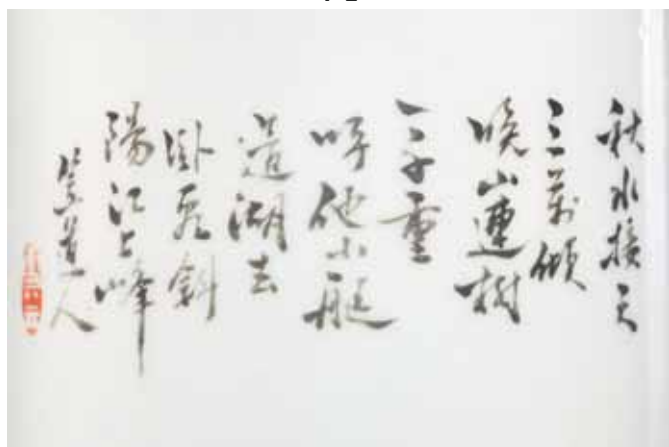 秋水接天
三萬傾
晚山連樹
一千重
呼他小艇
過湖去
卧看斜
陽江上峰
道人